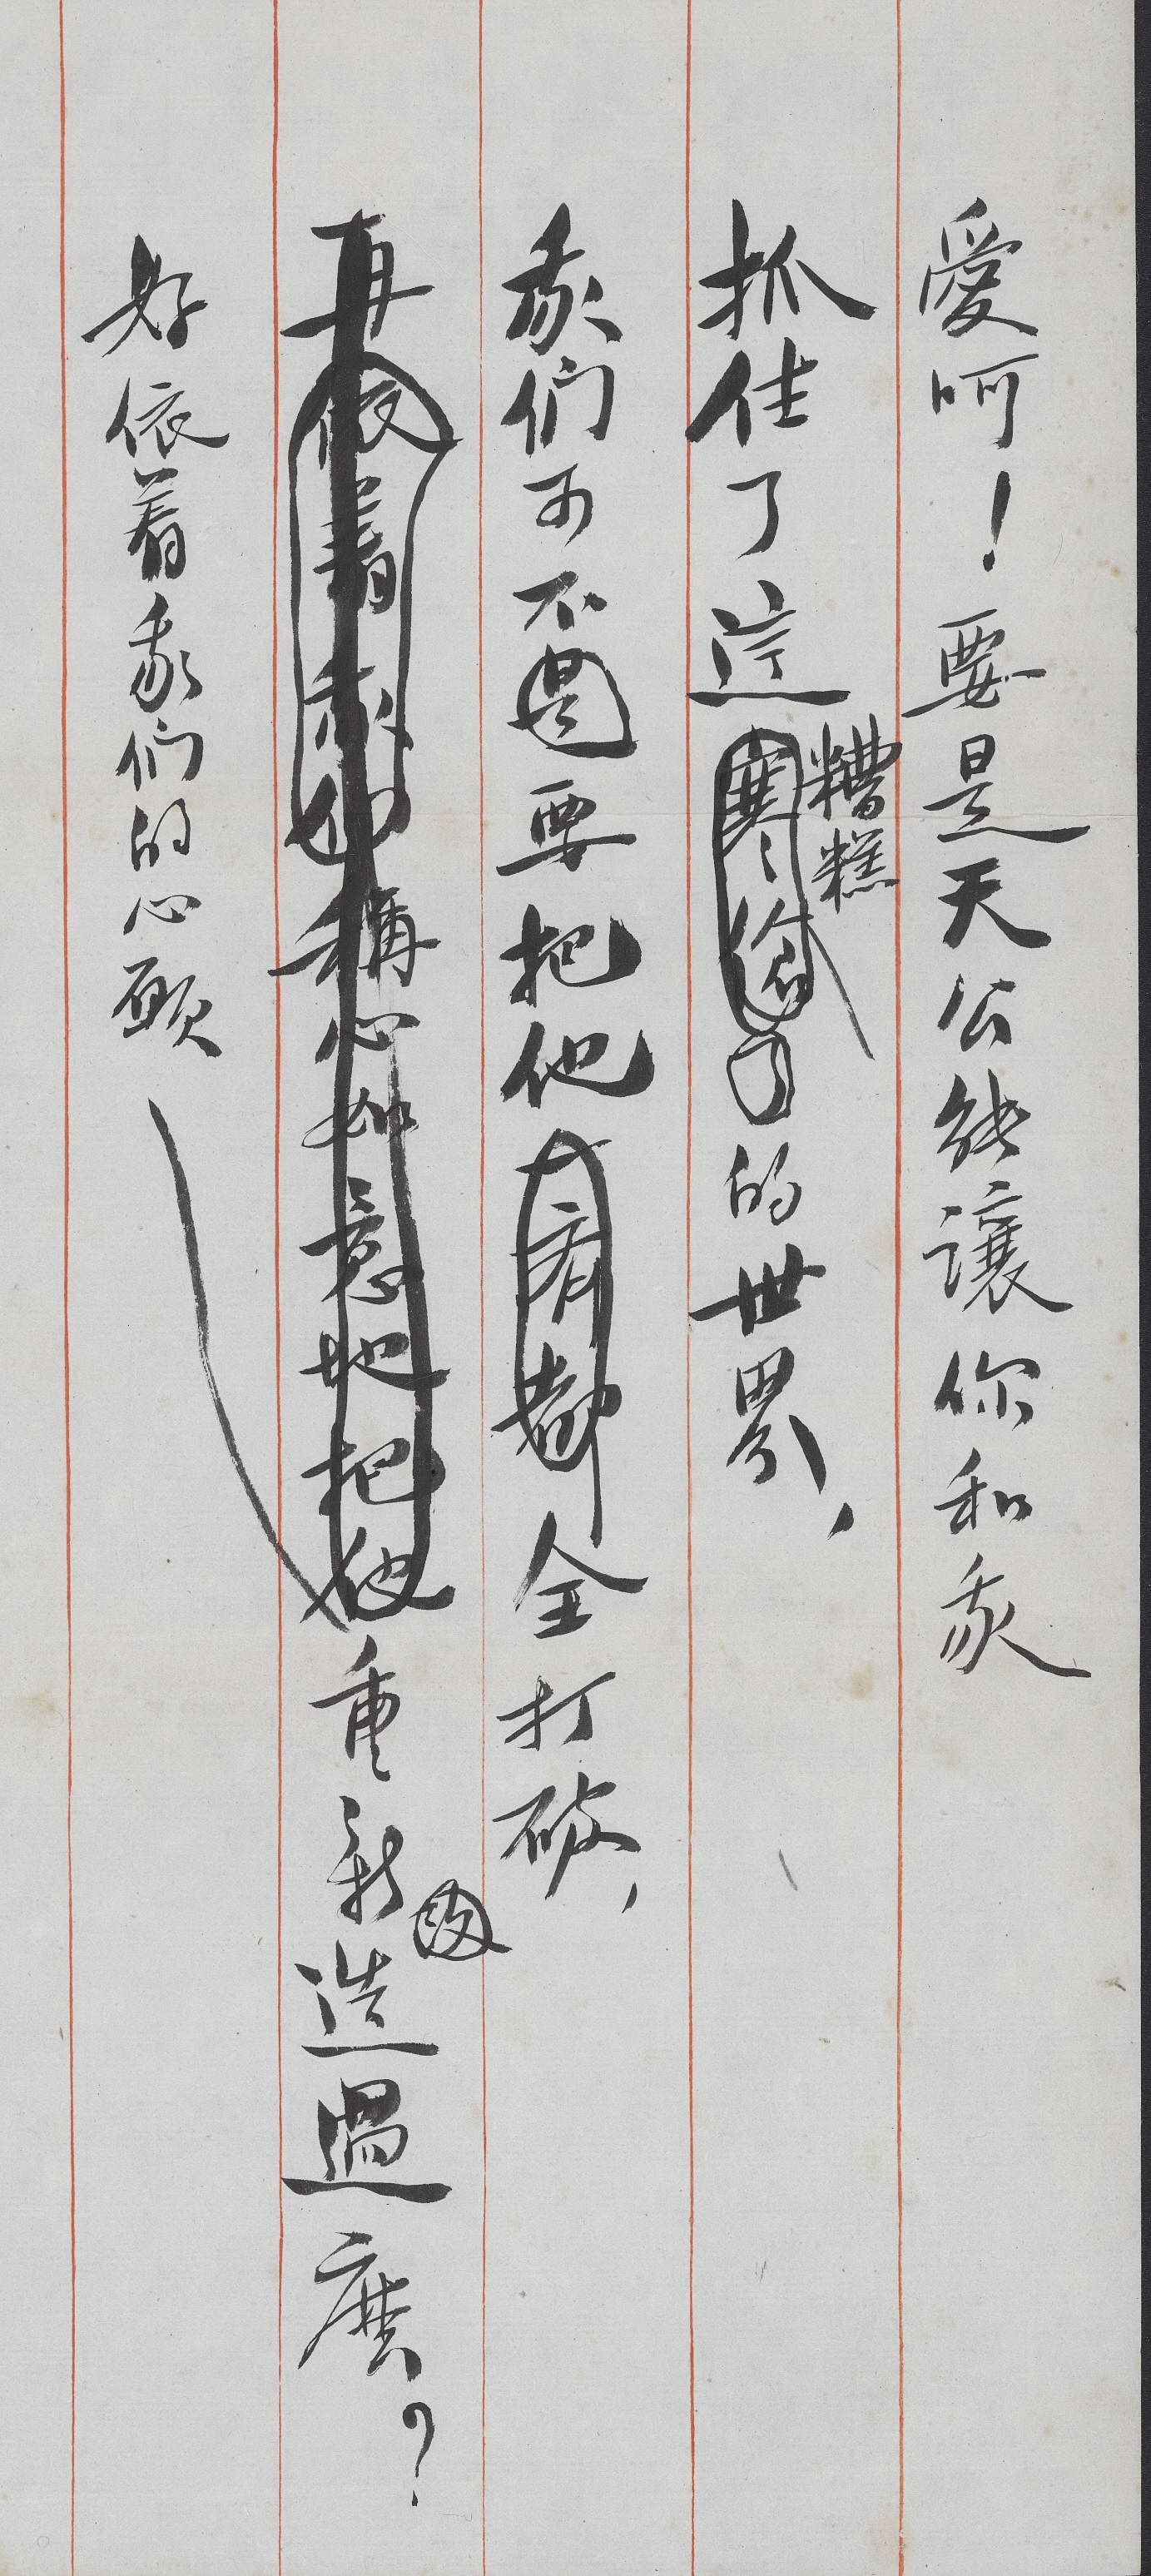 愛呵！要是天公能讓你和我
抓住了這寒傖的世界，
糟糕
我们可不是要把他有都全打破，
再依着我们稱心如意地把他重新造過麽？
改
好依着我们的心願